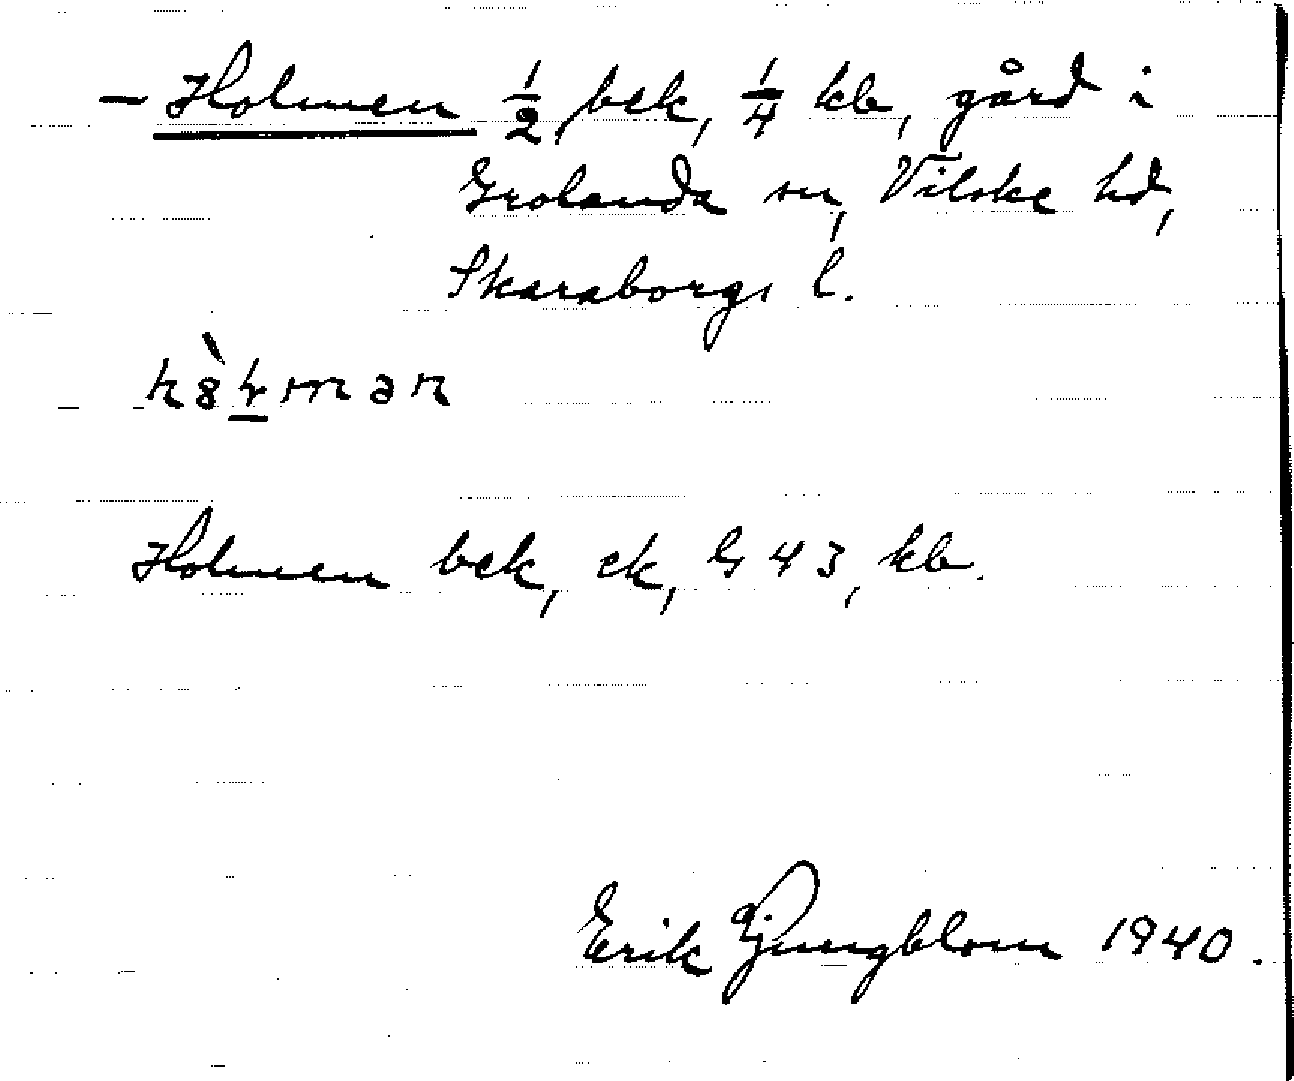 — Holmen 1/2 bek, 1/4 kb, gård i
Grolanda sn, Vilske hd,
Skaraborgs l.
Holmen bek, ek, G 43, kb.
Erik Ljungblom 1940.